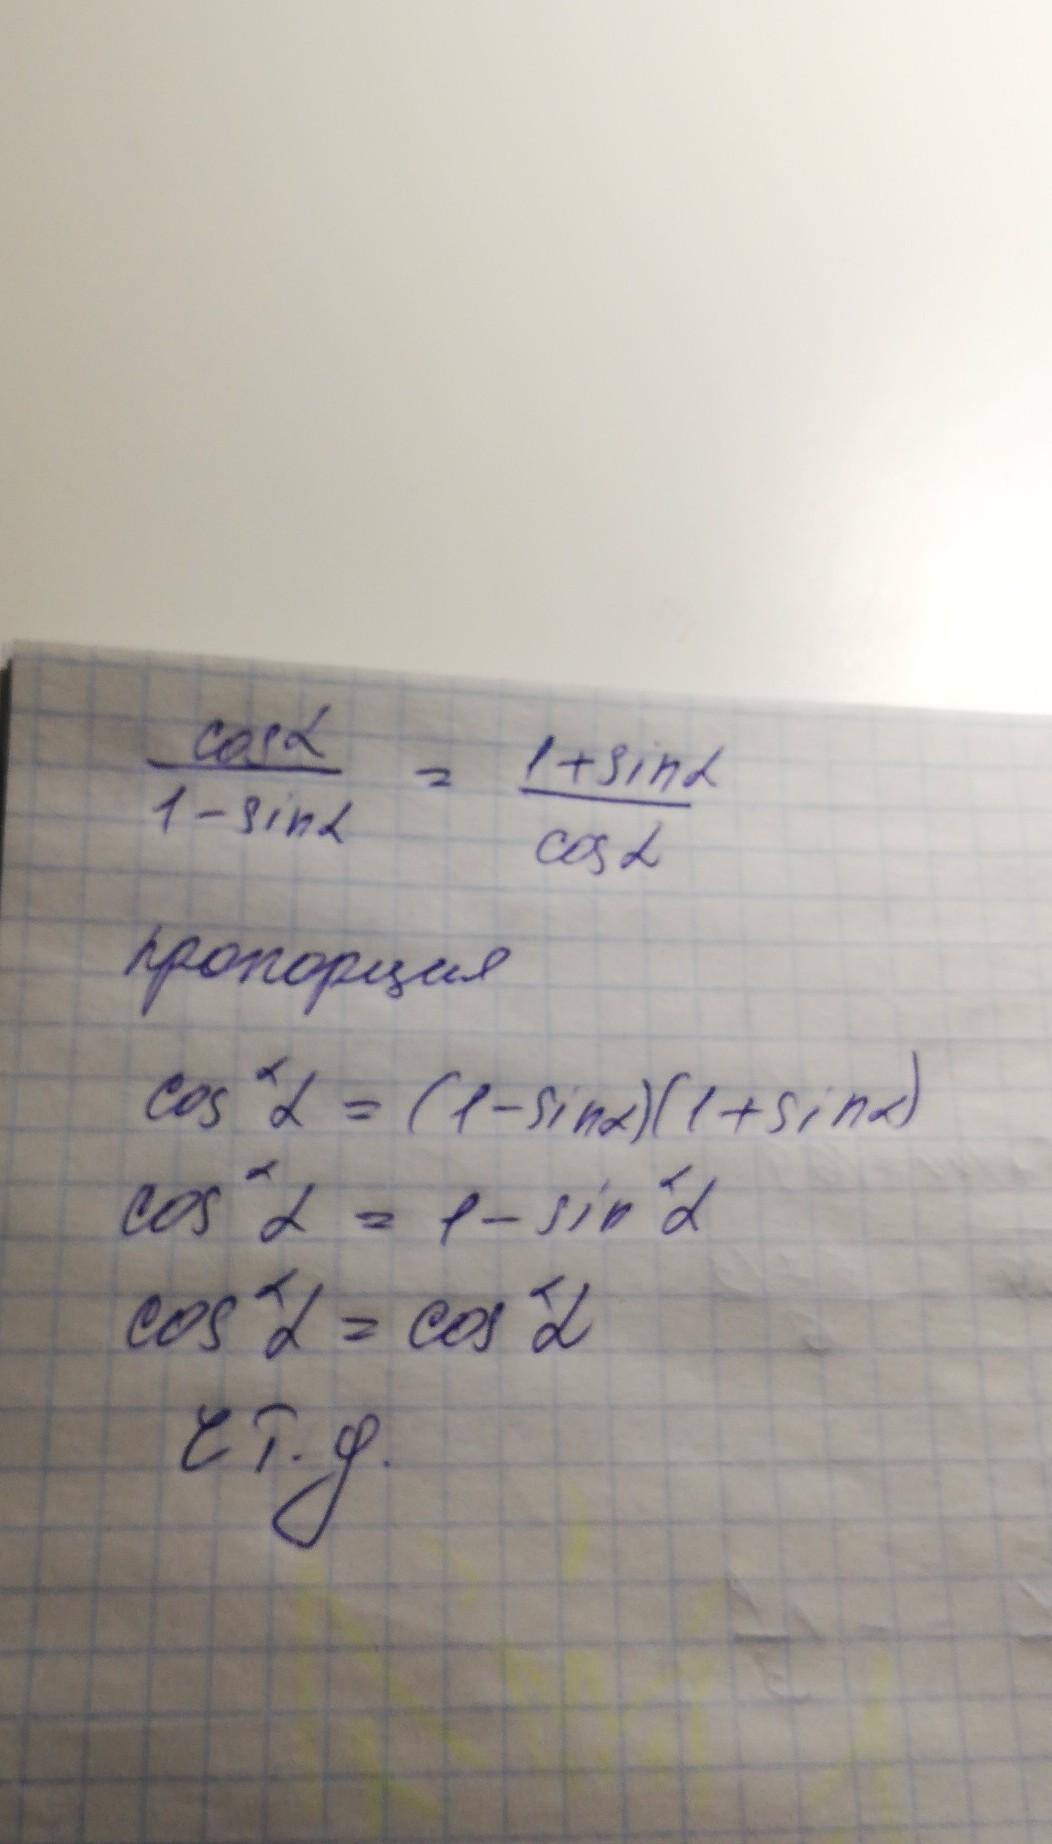 cosα/(1-sinα) = (1+sinα)/cosα
пропорция
cos²α = (1-sinα)(1+sinα)
cos²α = 1-sin²α
cos²α = cos²α
ч т. д.